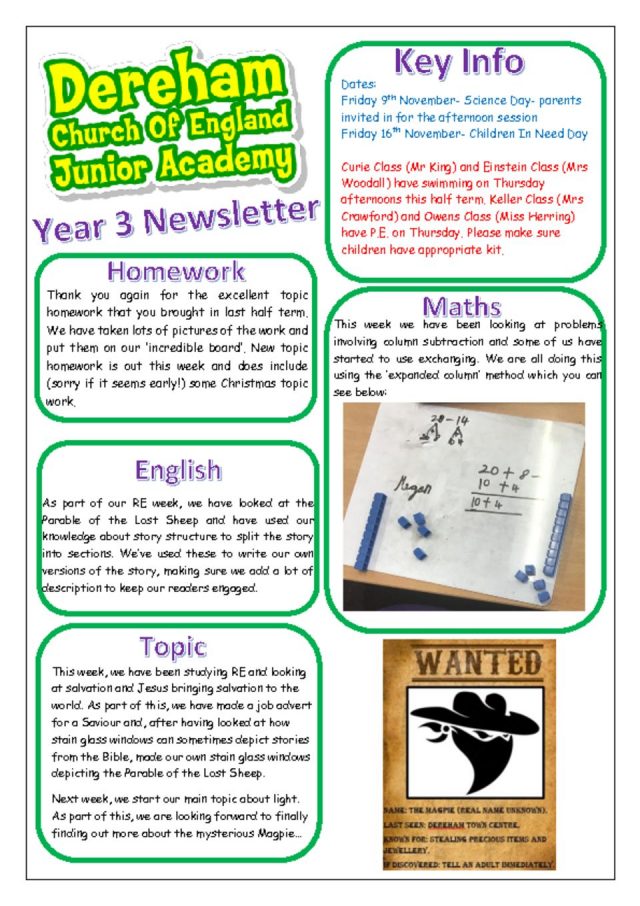 Dereham
Church Of England
Junior Academy
Year 3 Newsletter
Key Info
Dates:
Friday 9th November- Science Day- parents
invited in for the afternoon session
Friday 16th November- Children In Need Day
Curie Class (Mr King) and Einstein Class (Mrs
Woodall) have swimming on Thursday
afternoons this half term. Keller Class (Mrs
Crawford) and Owens Class (Miss Herring)
have P.E. on Thursday. Please make sure
children have appropriate kit.
Homework
Thank you again for the excellent topic
homework that you brought in last half term.
We have taken lots of pictures of the work and
put them on our 'incredible board'. New topic
homework is out this week and does include
(sorry if it seems early!) some Christmas topic
work.
Maths
This week we have been looking at problems
involving column subtraction and some of us have
started to use exchanging. We are all doing this
using the 'expanded column' method which you can
see below:
28-14
Megan
20+8-
10+4
10+4
English
As part of our RE week, we have looked at the
Parable of the Lost Sheep and have used our
knowledge about story structure to split the story
into sections. We've used these to write our own
versions of the story, making sure we add a lot of
description to keep our readers engaged.
Topic
This week, we have been studying RE and looking
at salvation and Jesus bringing salvation to the
world. As part of this, we have made a job advert
for a Saviour and, after having looked at how
stain glass windows can sometimes depict stories
from the Bible, made our own stain glass windows
depicting the Parable of the Lost Sheep.
Next week, we start our main topic about light.
As part of this, we are looking forward to finally
finding out more about the mysterious Magpie...
WANTED
NAME: THE MAGPIE (REAL NAME UNKNOWN).
LAST SEEN: DEREHAM TOWN CENTRE.
KNOWN FOR: STEALING PRECIOUS ITEMS AND
JEWELLERY.
IF DISCOVERED: TELL AN ADULT IMMEDIATELY.